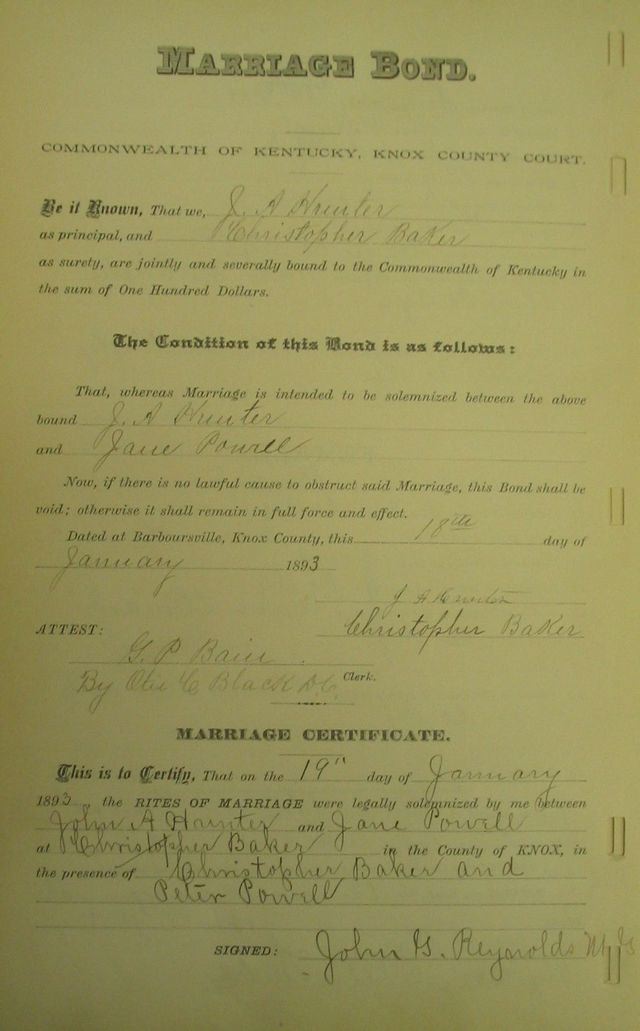 MARRIAGE BOND.
COMMONWEALTH OF KENTUCKY, KNOX COUNTY COURT.
Be it Known, That we, J. A Hunter
as principal, and Christopher Baker
as surety, are jointly and severally bound to the Commonwealth of Kentucky in
the sum of One Hundred Dollars.
The Condition of this Bond is as follows:
That, whereas Marriage is intended to be solemnized between the above
bound J. A Hunter
and Jane Powell
Now, if there is no lawful cause to obstruct said Marriage, this Bond shall be
void; otherwise it shall remain in full force and effect.
Dated at Barboursville, Knox County, this 18th day of
January 1893
J A Hunter
ATTEST: Christopher Baker
G. P. Bain
By Otis C Black D.C. Clerk.
MARRIAGE CERTIFICATE.
This is to Certify, That on the 19" day of January
1893, the RITES OF MARRIAGE were legally solemnized by me between
John A Hunter and Jane Powell
at Christopher Baker in the County of KNOX, in
the presence of Christopher Baker and
Peter Powell
SIGNED: John G. Reynolds M G